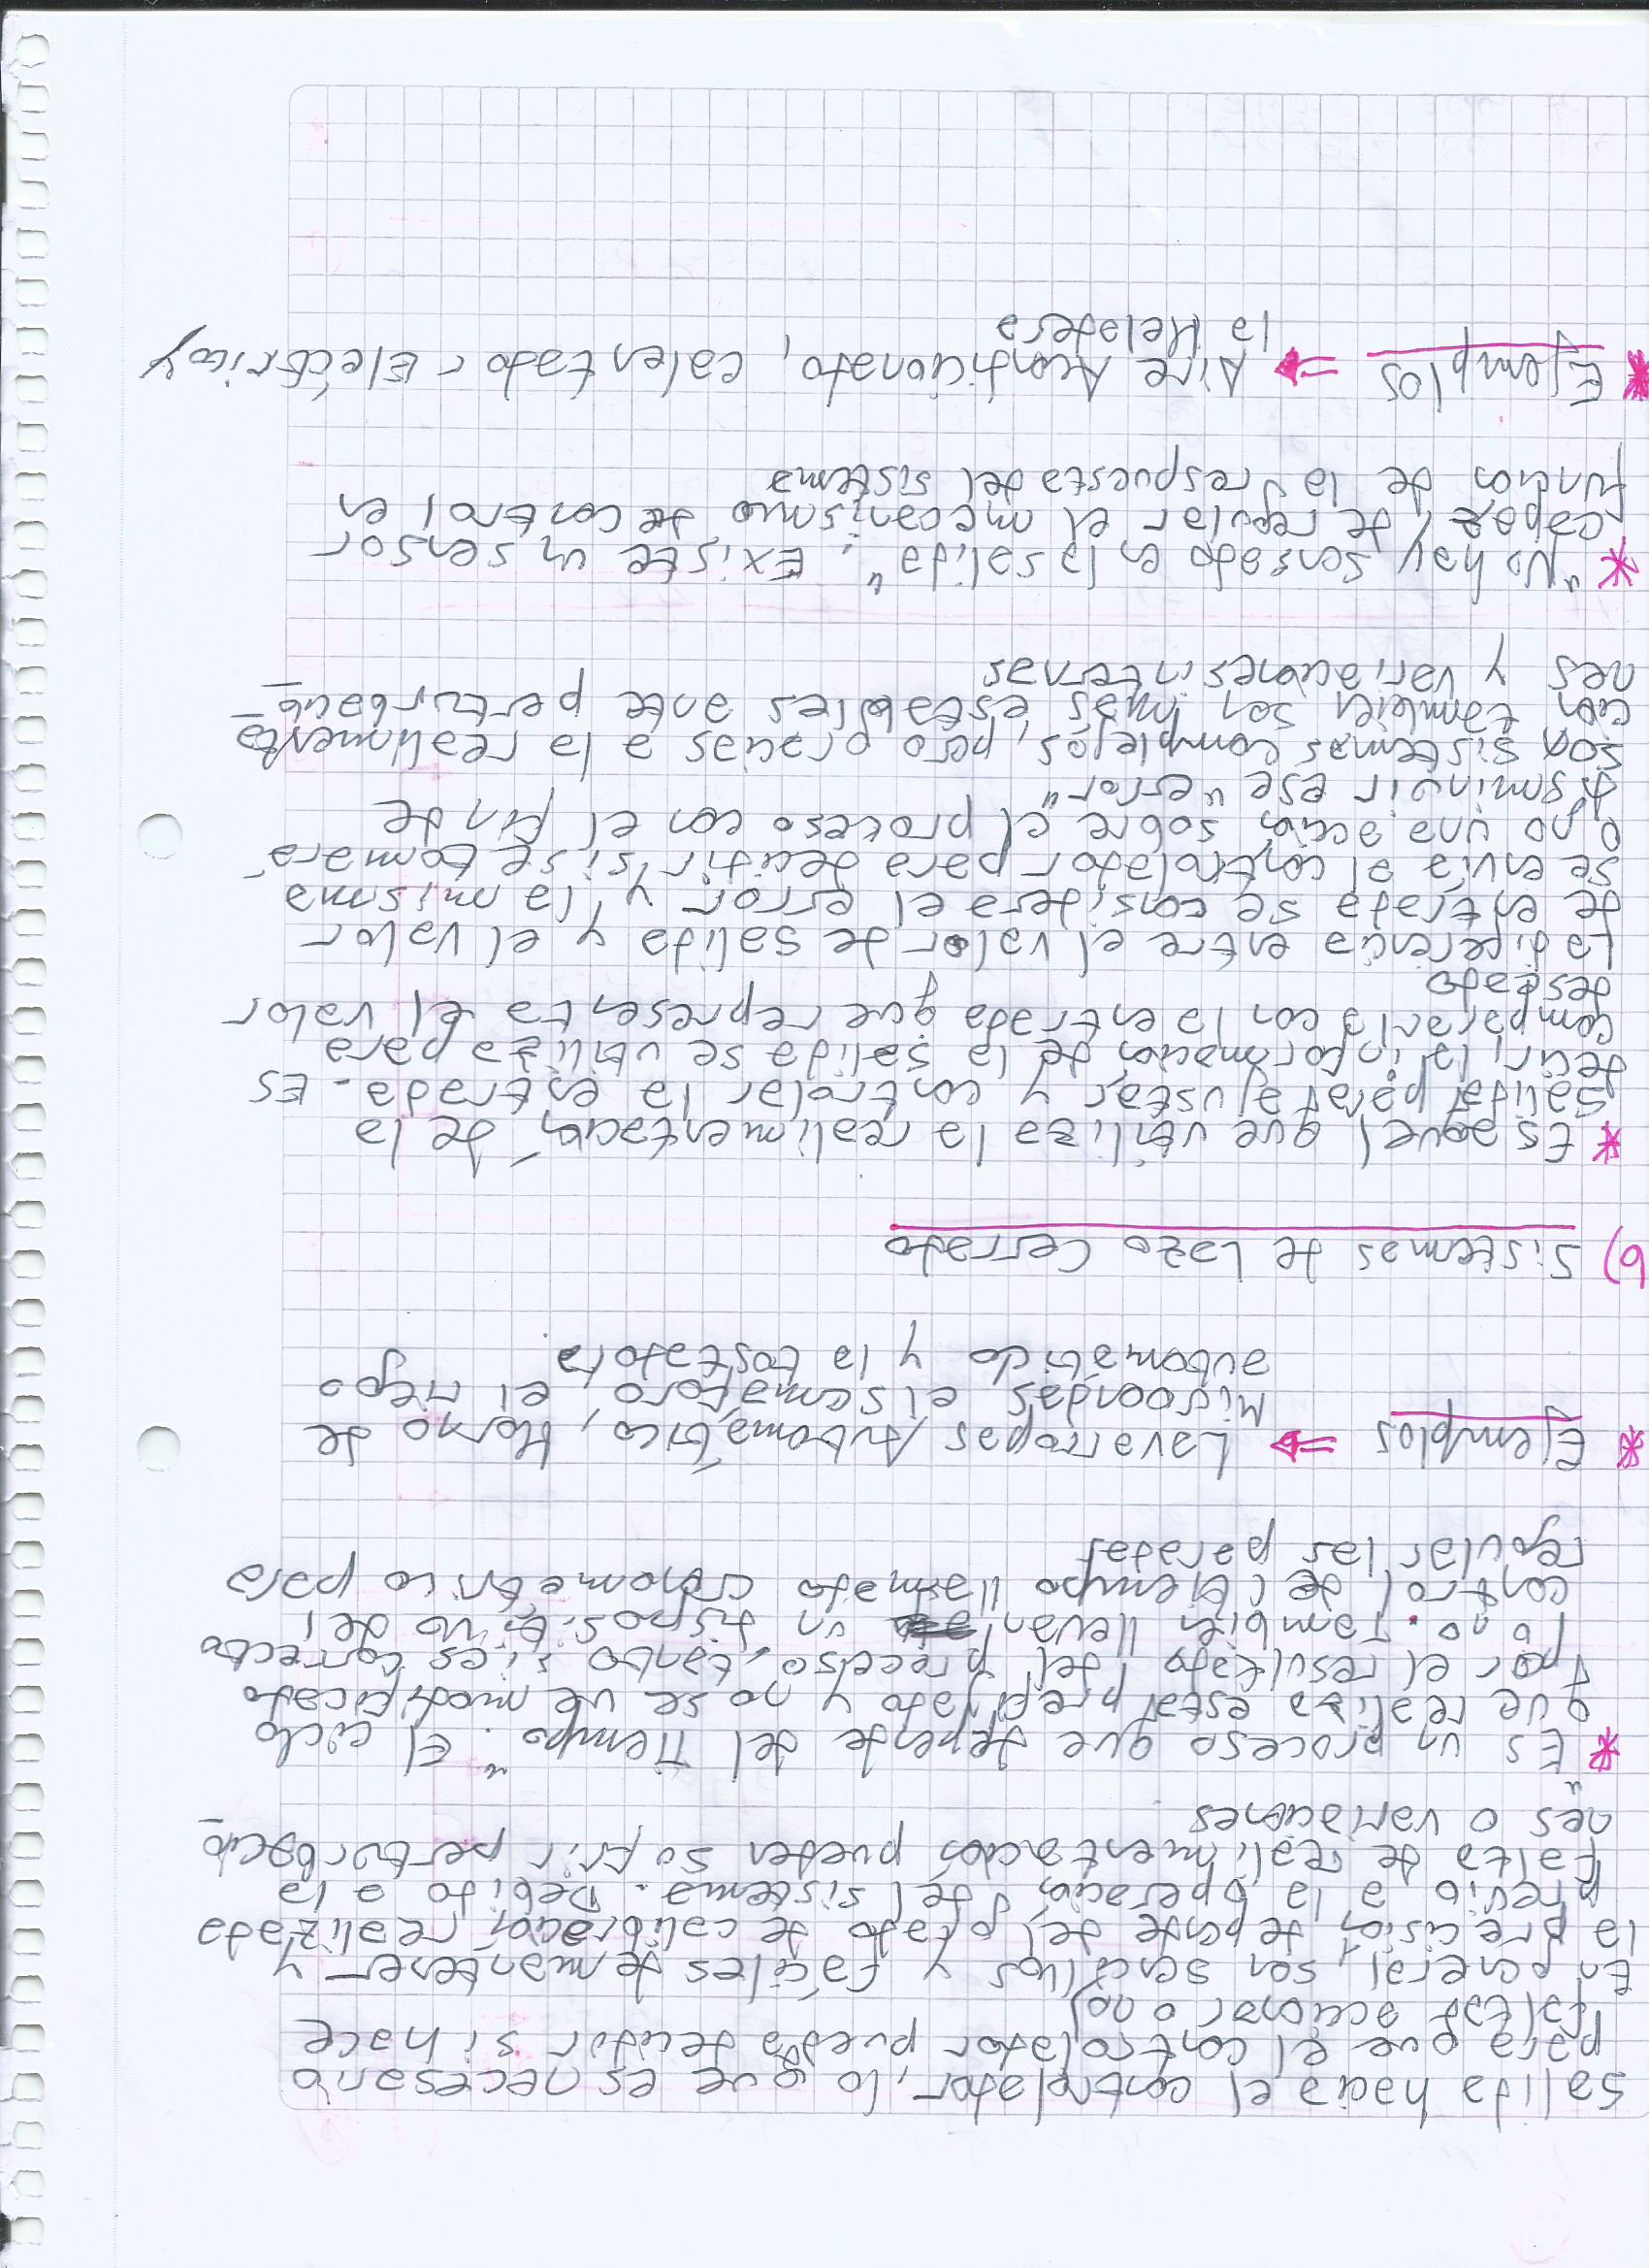 salida hacia el controlador, lo que es necesario
para que el controlador pueda decidir si hace
falta accionar o no)
En general, son sencillos y fáciles de mantener y
la precisión depende del grado de calibración realizada
previo a la operación del sistema. Debido a la
falta de realimentación pueden sufrir perturbacio
nes o variaciones
* "Es un proceso que depende del Tiempo". El ciclo
que realiza esta prefijado y no se ve modificado
por el resultado del proceso, tanto si es correcto
o no. También llevan un dispositivo de
control de tiempo llamado cronométrico para
regular las paradas
* Ejemplos ⇒ Lavarropas Automático, Horno de
Microondas, el semáforo, el riego
automático y la tostadora.
b) Sistemas de Lazo Cerrado
* Es aquel que utiliza la realimentación de la
salida para ajustar y controlar la entrada. Es
decir, la información de la salida se utiliza para
compararla con la entrada que representa el valor
deseado
La diferencia entre el valor de salida y el valor
de entrada se considera el error y la misma
se envía al controlador para decidir si se tomará
o no una acción sobre el proceso con el fin de
disminuir ese "error"
Son sistemas complejos, pero gracias a la realimenta
ción también son más estables ante perturbacio
nes y variaciones internas
* "No hay sensado en la salida". Existe un sensor
capaz de regular el mecanismo de control en
función de la respuesta del sistema
* Ejemplos ⇒ Aire Acondicionado, calentador Eléctrico y
la Heladera